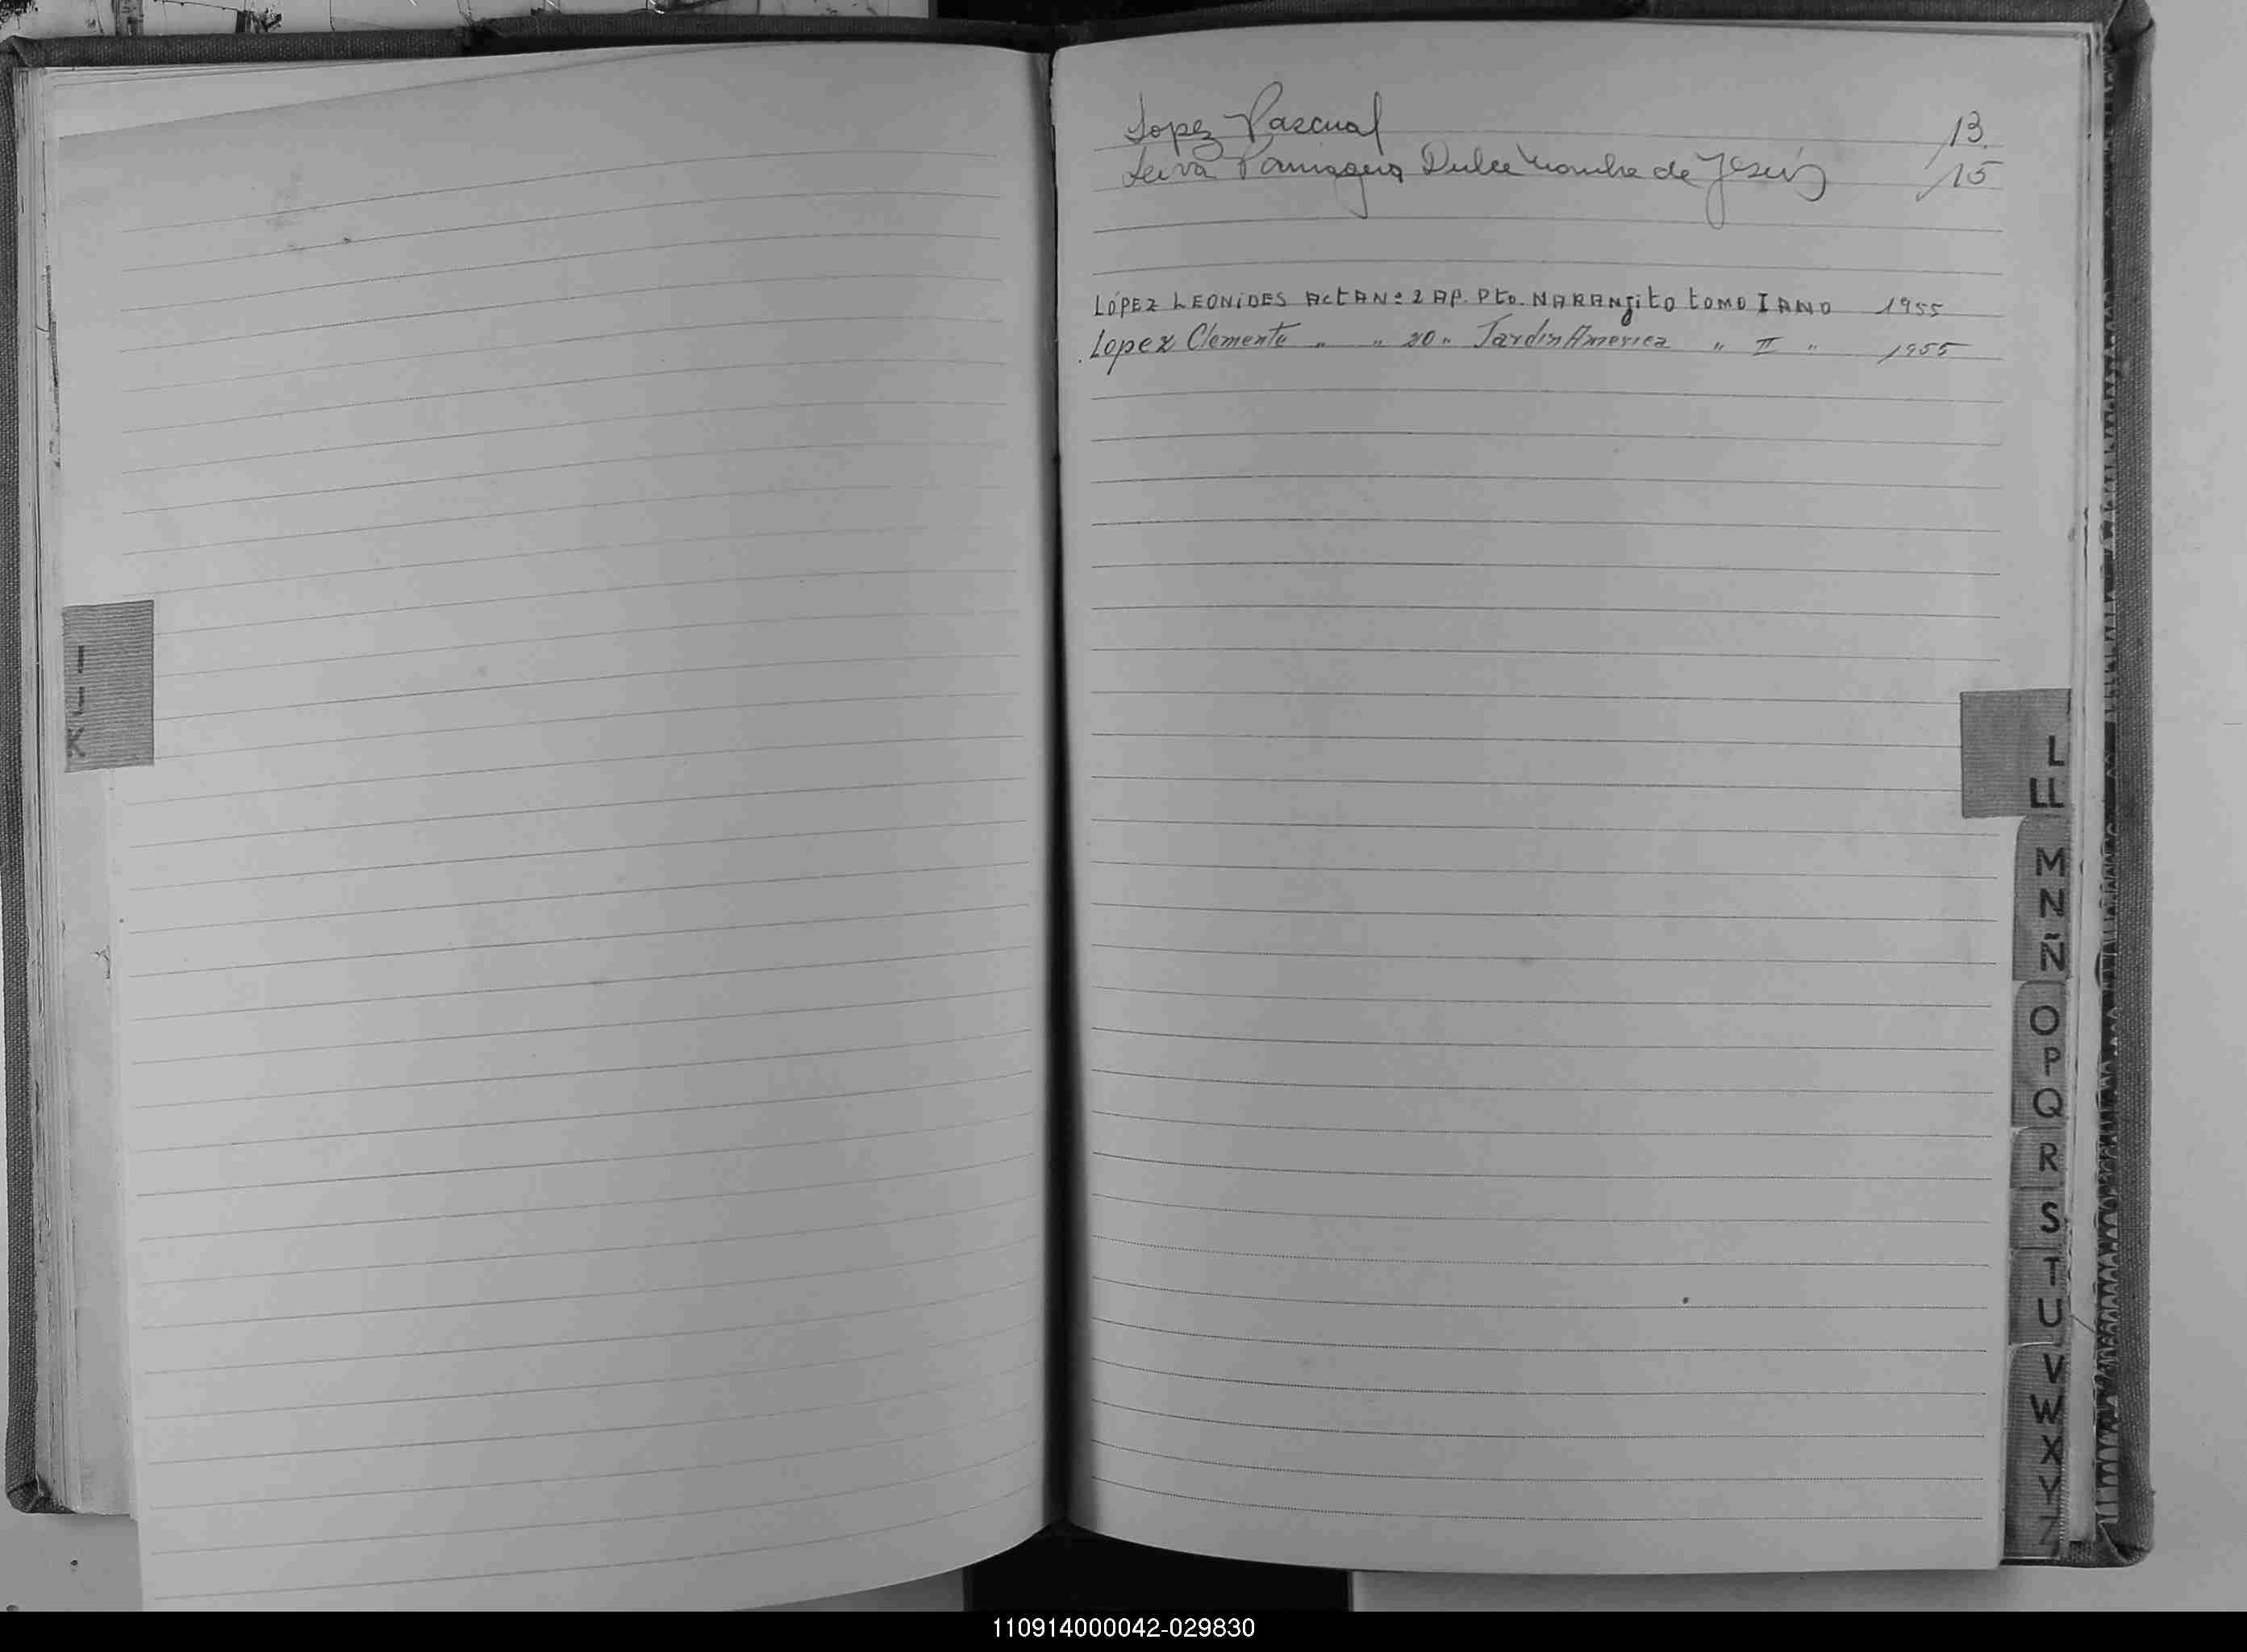 I
J
K
Lopez Pascual 13.
Leiva Paniagua Dulce Nombre de Jesús 15
LÓPEZ LEONIDES ACTA Nº 2 AP. Pto. NARANJITO TOMO I AÑO 1955
Lopez Clemente " " 20 " Jardin America " II " 1955
L
LL
M
N
Ñ
O
P
Q
R
S
T
U
V
W
X
Y
Z
110914000042-029830